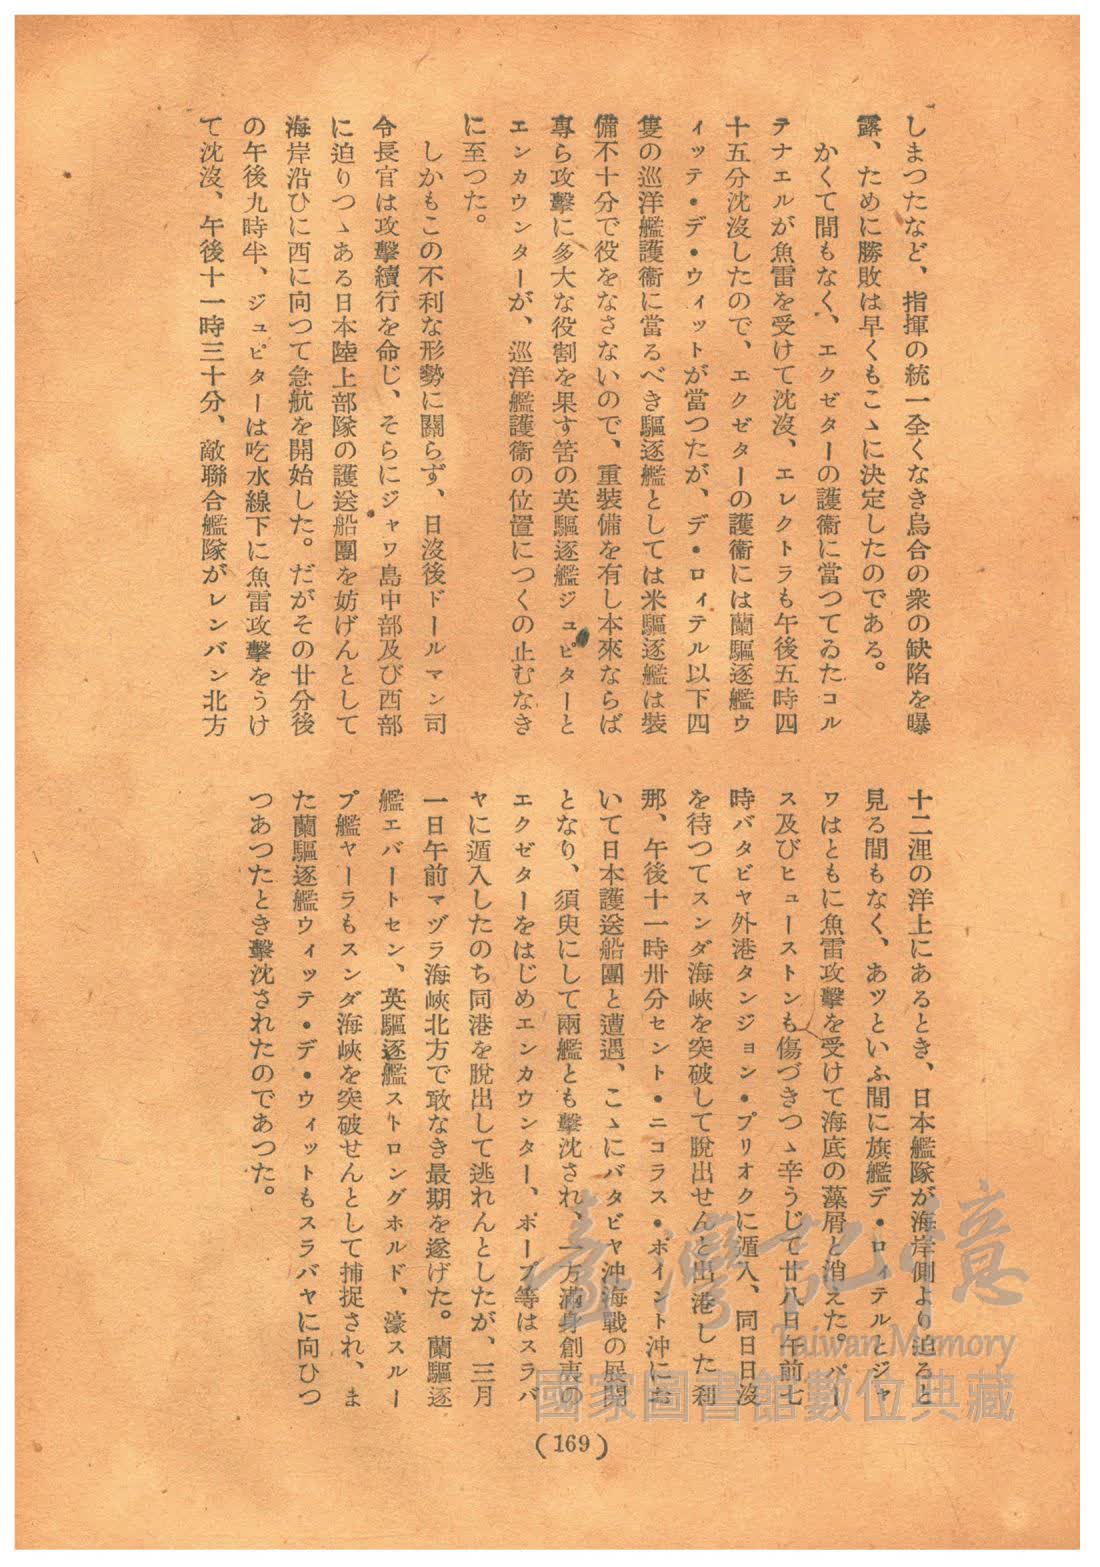 しまつたなど、指揮の統一全くなき烏合の衆の缺陷を曝
露、ために勝敗は早くもこゝに決定したのである。
かくて間もなく、エクゼターの護衞に當つてゐたコル
テナエルが魚雷を受けて沈沒、エレクトラも午後五時四
十五分沈沒したので、エクゼターの護衞には蘭驅逐艦ウ
ィッテ・デ・ウィットが當つたが、デ・ロィテル以下四
隻の巡洋艦護衞に當るべき驅逐艦としては米驅逐艦は裝
備不十分で役をなさないので、重裝備を有し本來ならば
專ら攻擊に多大な役割を果す筈の英驅逐艦ジュピターと
エンカウンターが、巡洋艦護衞の位置につくの止むなき
に至つた。
しかもこの不利な形勢に關らず、日沒後ドールマン司
令長官は攻擊續行を命じ、そらにジャワ島中部及び西部
に迫りつゝある日本陸上部隊の護送船團を妨げんとして
海岸沿ひに西に向つて急航を開始した。だがその廿分後
の午後九時半、ジュピターは吃水線下に魚雷攻擊をうけ
て沈沒、午後十一時三十分、敵聯合艦隊がレンバン北方
十二浬の洋上にあるとき、日本艦隊が海岸側より迫ると
見る間もなく、あツといふ間に旗艦デ・ロィテルとジャ
ワはともに魚雷攻擊を受けて海底の藻屑と消えた。パー
ス及びヒューストンも傷づきつゝ辛うじて廿八日午前七
時バタビヤ外港タンジョン・プリオクに遁入、同日日沒
を待つてスンダ海峽を突破して脫出せんと出港した刹
那、午後十一時卅分セント・ニコラス・ポイント沖にお
いて日本護送船團と遭遇、こゝにバタビヤ沖海戰の展開
となり、須臾にして兩艦とも擊沈され、一方滿身創夷の
エクゼターをはじめエンカウンター、ポープ等はスラバ
ヤに遁入したのち同港を脫出して逃れんとしたが、三月
一日午前マヅラ海峽北方で敢なき最期を遂げた。蘭驅逐
艦エバートセン、英驅逐艦ストロングホルド、濠スルー
プ艦ヤーラもスンダ海峽を突破せんとして捕捉され、ま
た蘭驅逐艦ウィッテ・デ・ウィットもスラバヤに向ひつ
つあつたとき擊沈されたのであつた。
(169)
臺灣記憶
Taiwan Memory
國家圖書館數位典藏